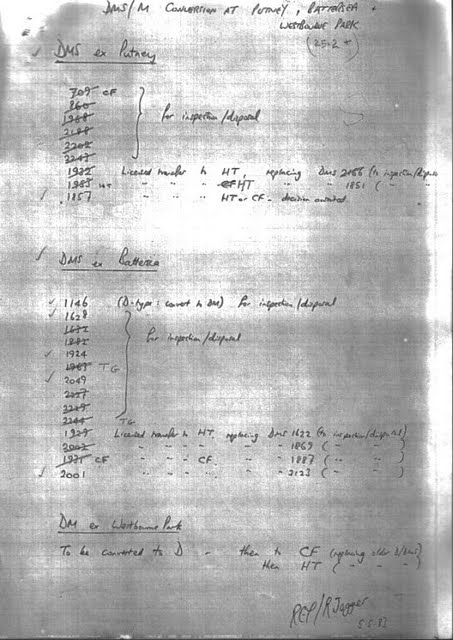 DMS/M CONVERSION AT PUTNEY, BATTERSEA +
WESTBOURNE PARK
(25.2 +)
✓ DMS ex Putney
709 CF
860
1988
2188
2202
2247
For inspection/disposal
1932 Licensed transfer to HT, replacing DMS 2166 (to inspection/dispos
1985 HT " " " CF HT " " 1851 ( "
✓ 1857 " " " HT or CF - decision awaited
✓ DMS ex Battersea
✓ 1146 (D-type: convert to DM) For inspection/disposal
✓ 1628
1672
1882
✓ 1924
1963 TG
✓ 2049
2227
2229
2244 TG
For inspection/disposal
1929 Licensed transfer to HT, replacing DMS 1622 (to inspection/disposal)
2002 " " " " " 1869 ( " " )
1971 CF " " " CF " " 1887 ( " " )
✓ 2001 " " " " " 2123 ( " " )
DM ex Westbourne Park
To be converted to D - then to CF (replacing older D/DMS)
then HT ( " " " )
REP/RJagger
5.5.83